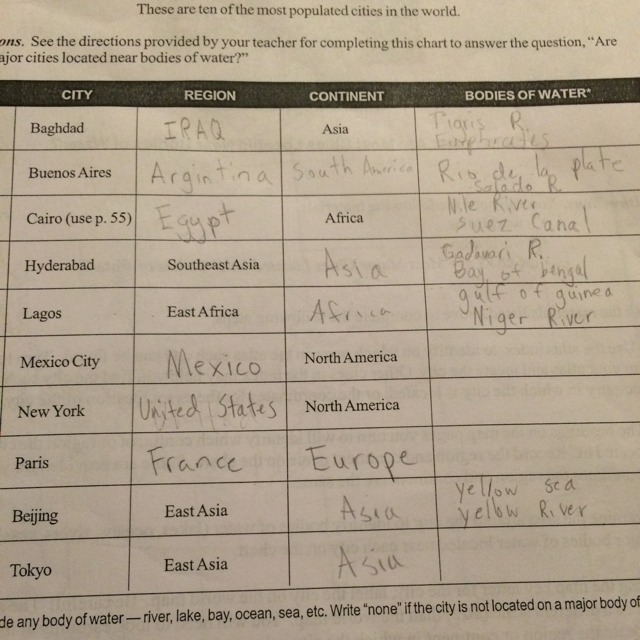 These are ten of the most populated cities in the world.
ons. See the directions provided by your teacher for completing this chart to answer the question, “Are
ajor cities located near bodies of water?”
CITY REGION CONTINENT BODIES OF WATER*
Baghdad IRAQ Asia Tigris R.
Euephrates
Buenos Aires Argintina South America Rio de la plate
Salado R.
Cairo (use p. 55) Egypt Africa Nile River
Suez Canal
Hyderabad Southeast Asia Asia Gadavari R.
Bay of bengal
Lagos East Africa Africa gulf of guinea
Niger River
Mexico City Mexico North America
New York United States North America
Paris France Europe
Beijing East Asia Asia yellow sea
yellow River
Tokyo East Asia Asia
de any body of water — river, lake, bay, ocean, sea, etc. Write “none” if the city is not located on a major body of